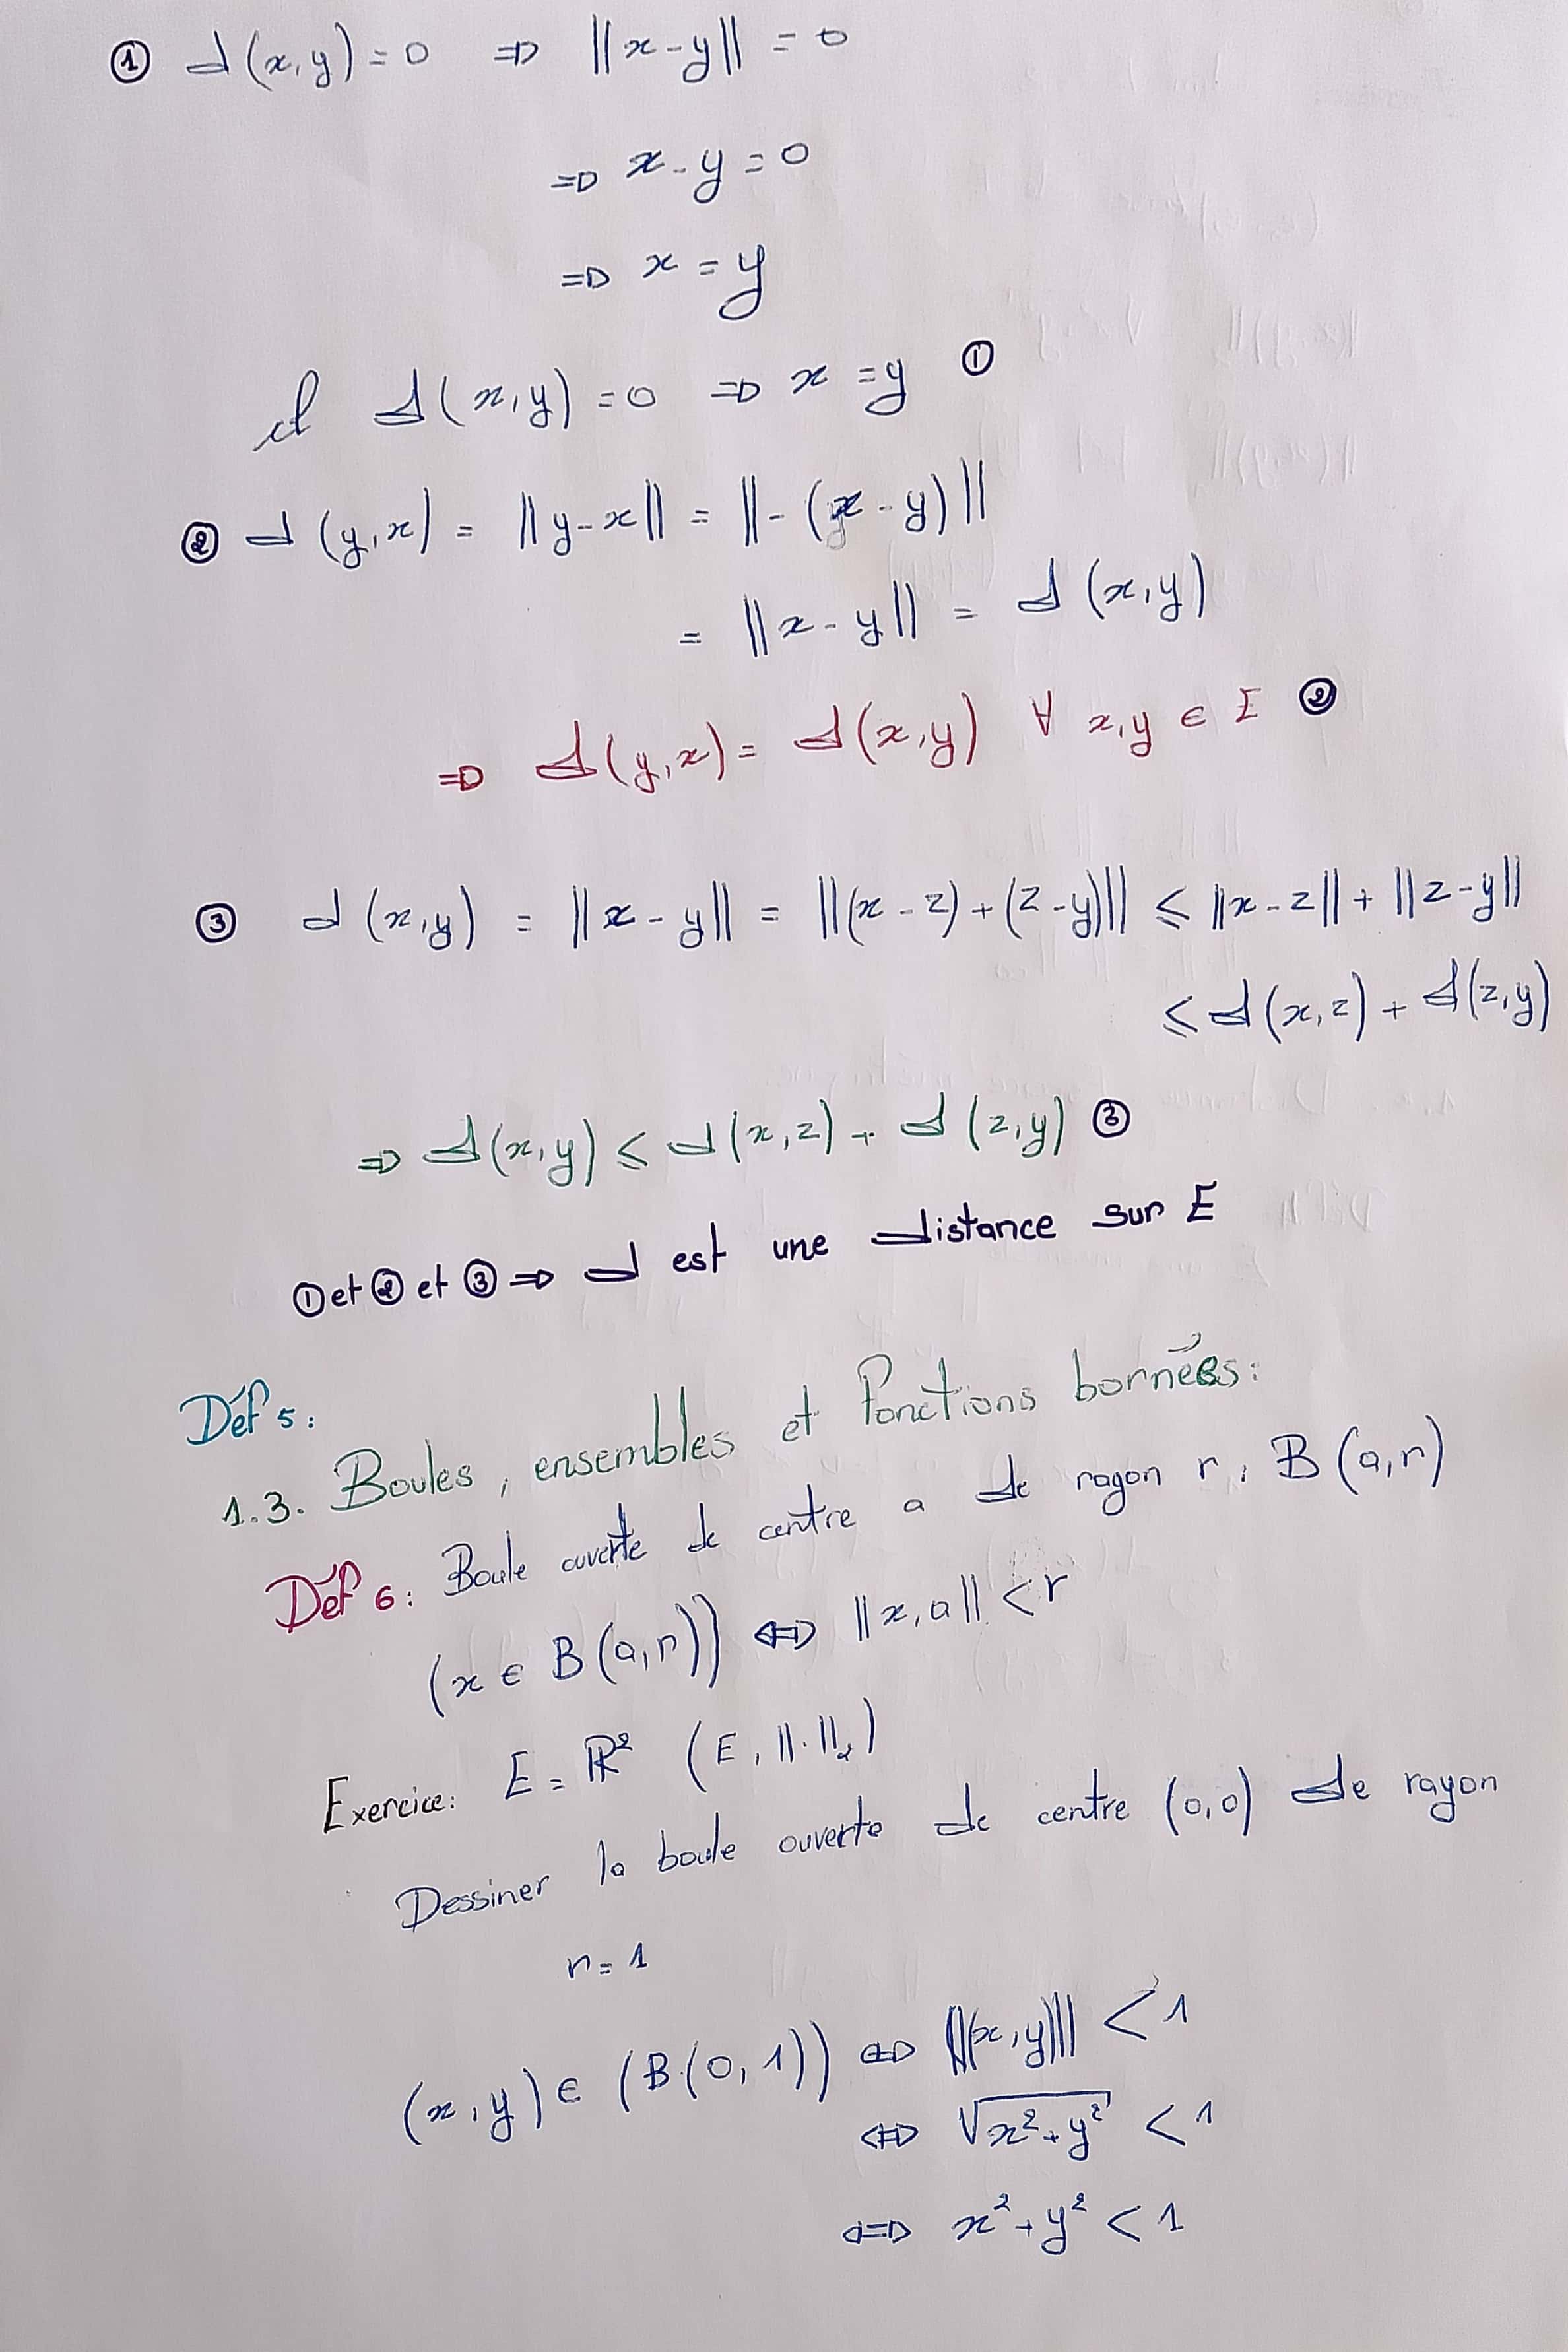 ① d(x,y)=0 ⇒ ||x-y|| = 0
⇒ x-y=0
⇒ x=y
d(x,y)=0 ⇒ x=y ①
② d(y,x) = ||y-x|| = ||-(x-y)||
= ||x-y|| = d(x,y)
⇒ d(y,x) = d(x,y) ∀ x,y ∈ E ②
③ d(x,y) = ||x-y|| = ||(x-z)+(z-y)|| ≤ ||x-z|| + ||z-y||
≤ d(x,z) + d(z,y)
⇒ d(x,y) ≤ d(x,z) + d(z,y) ③
① et ② et ③ ⇒ d est une distance sur E
Déf 5:
1.3. Boules, ensembles et fonctions bornées:
Déf 6: Boule ouverte de centre a de rayon r, B(a,r)
(x ∈ B(a,r)) ⇔ ||x,a|| < r
Exercice: E = ℝ² (E, ||.||₂)
Dessiner la boule ouverte de centre (0,0) de rayon
r=1
(x,y) ∈ (B(0,1)) ⇔ ||(x,y)|| < 1
⇔ √(x²+y²) < 1
⇔ x²+y² < 1